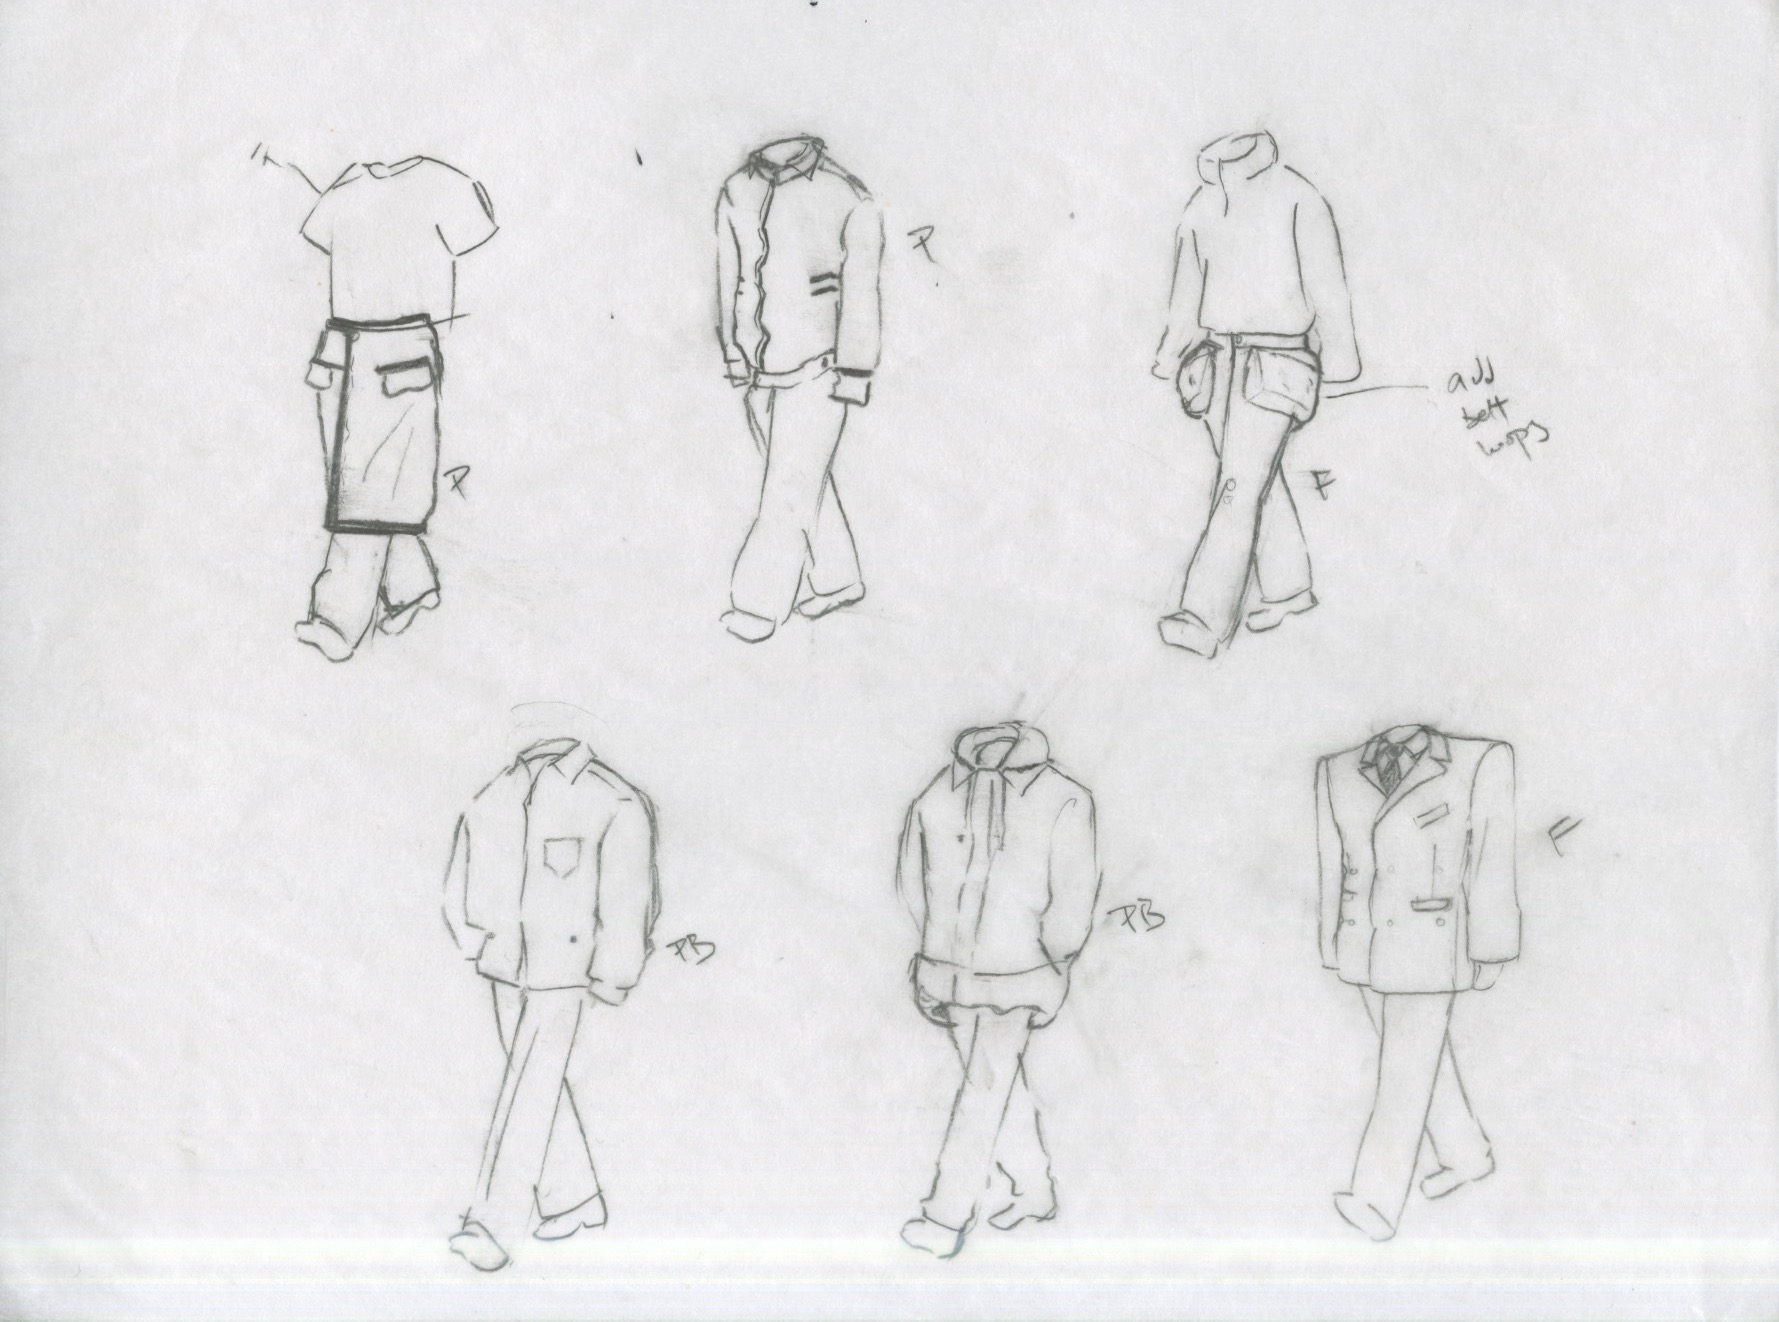 P
P
F
add
belt
loops
PB
PB
F